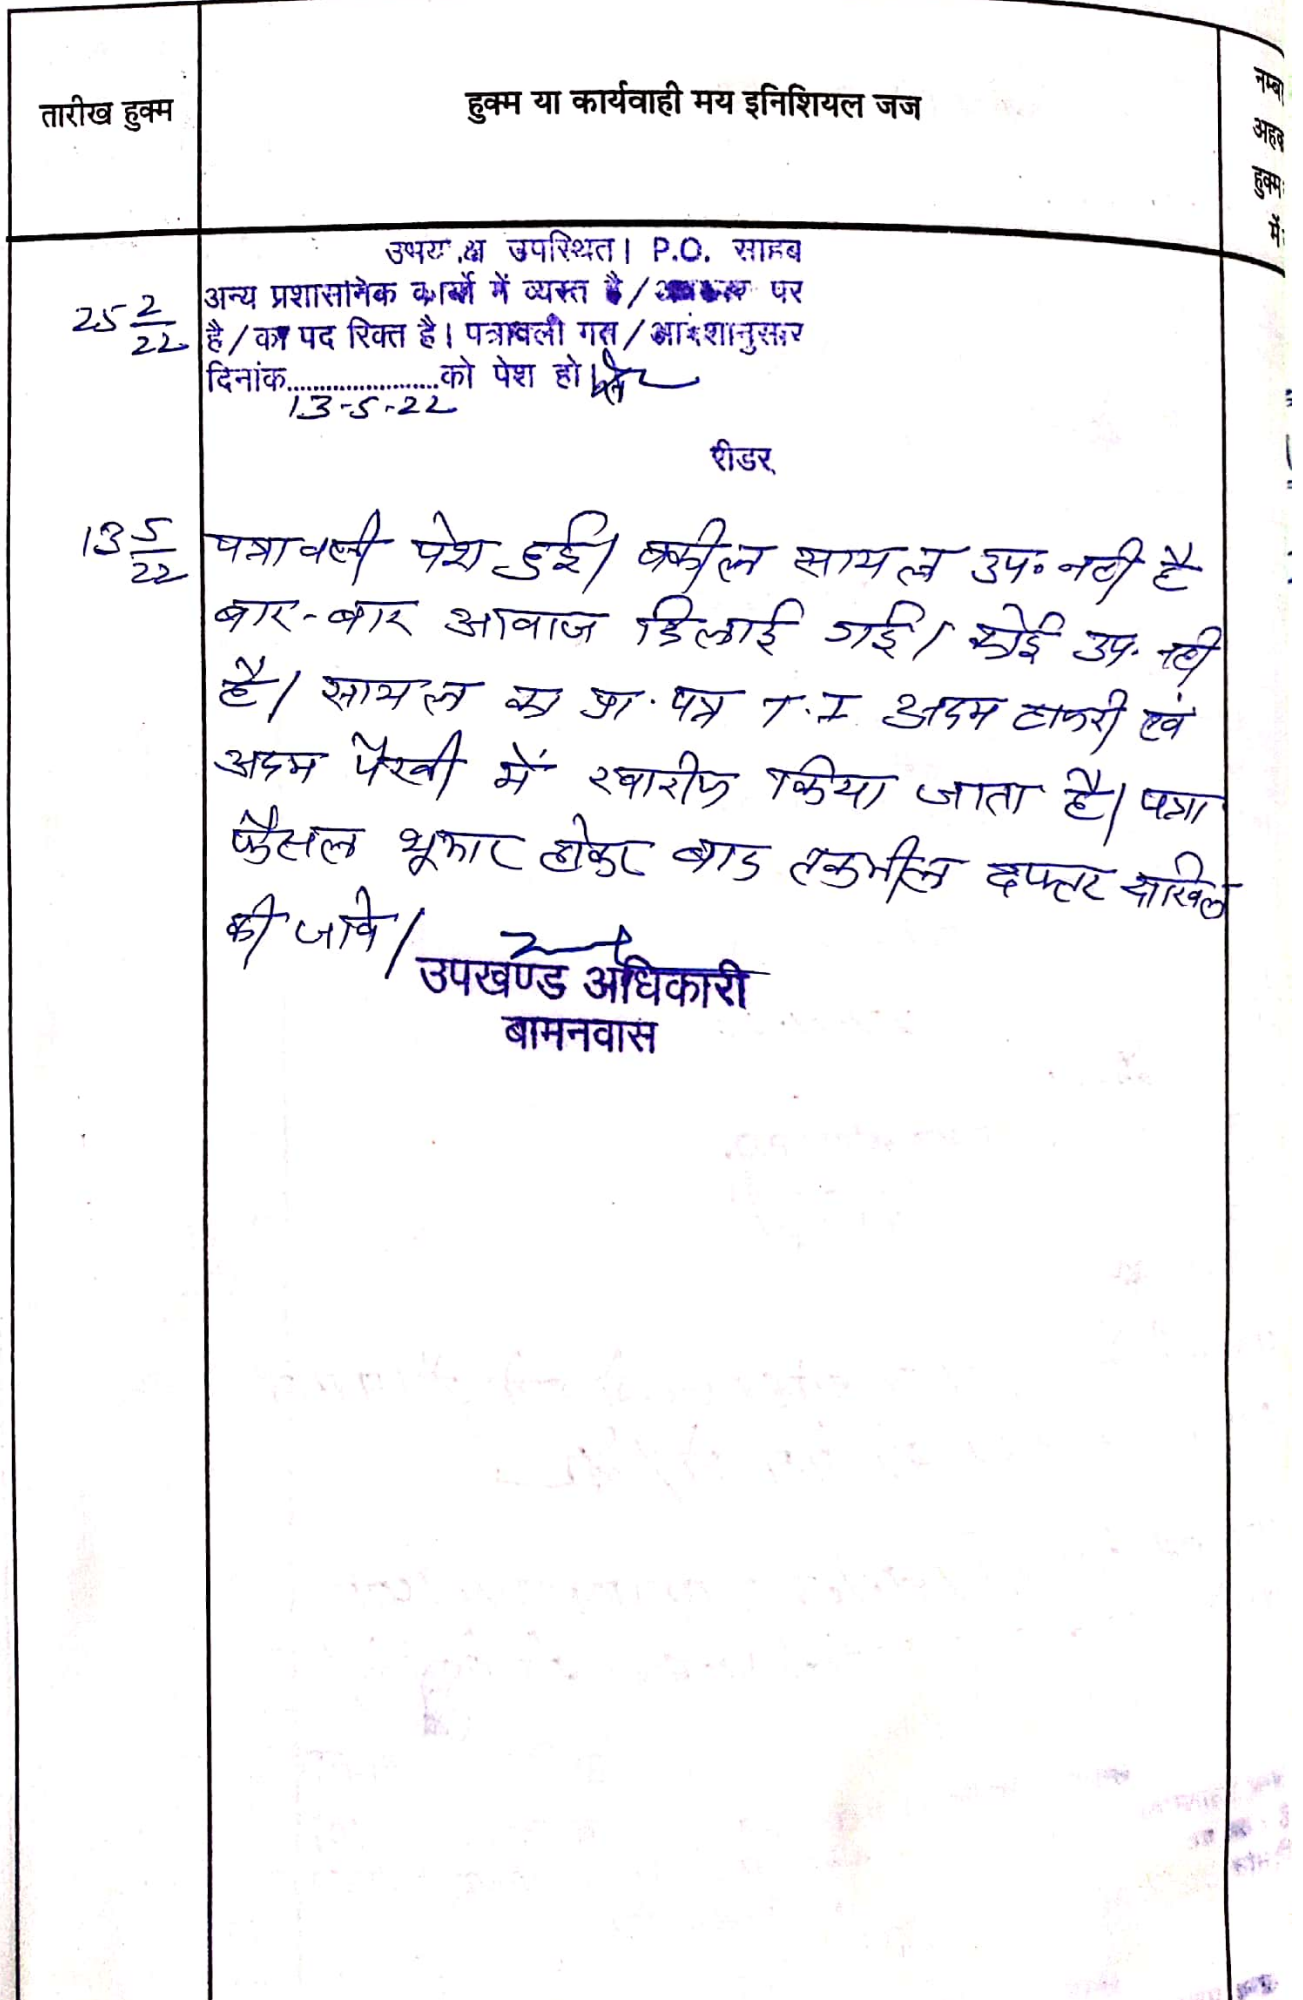 तारीख हुक्म
हुक्म या कार्यवाही मय इनिशियल जज
नम्ब
अहव
हुक्म
में
उभय क्ष उपस्थित। P.O. साहब
25 2/22
अन्य प्रशासनिक कार्यो में व्यस्त है/ पर
है/का पद रिक्त है। पत्रावली गत/आदेशानुसार
दिनांक......................को पेश हो।
13-5-22
रीडर
13 5/22
पत्रावली पेश हुई। वकील सायल उप० नही है
बार-बार आवाज दिलाई गई। कोई उप. नही
है। सायल का प्रा. पत्र T.I अदम हाजरी एवं
अदम पैरवी में खारीज किया जाता है। पत्रा
फैसल शूमार होकर बाद तकमील दफ्तर दाखिल
की जावे।
उपखण्ड अधिकारी
बामनवास